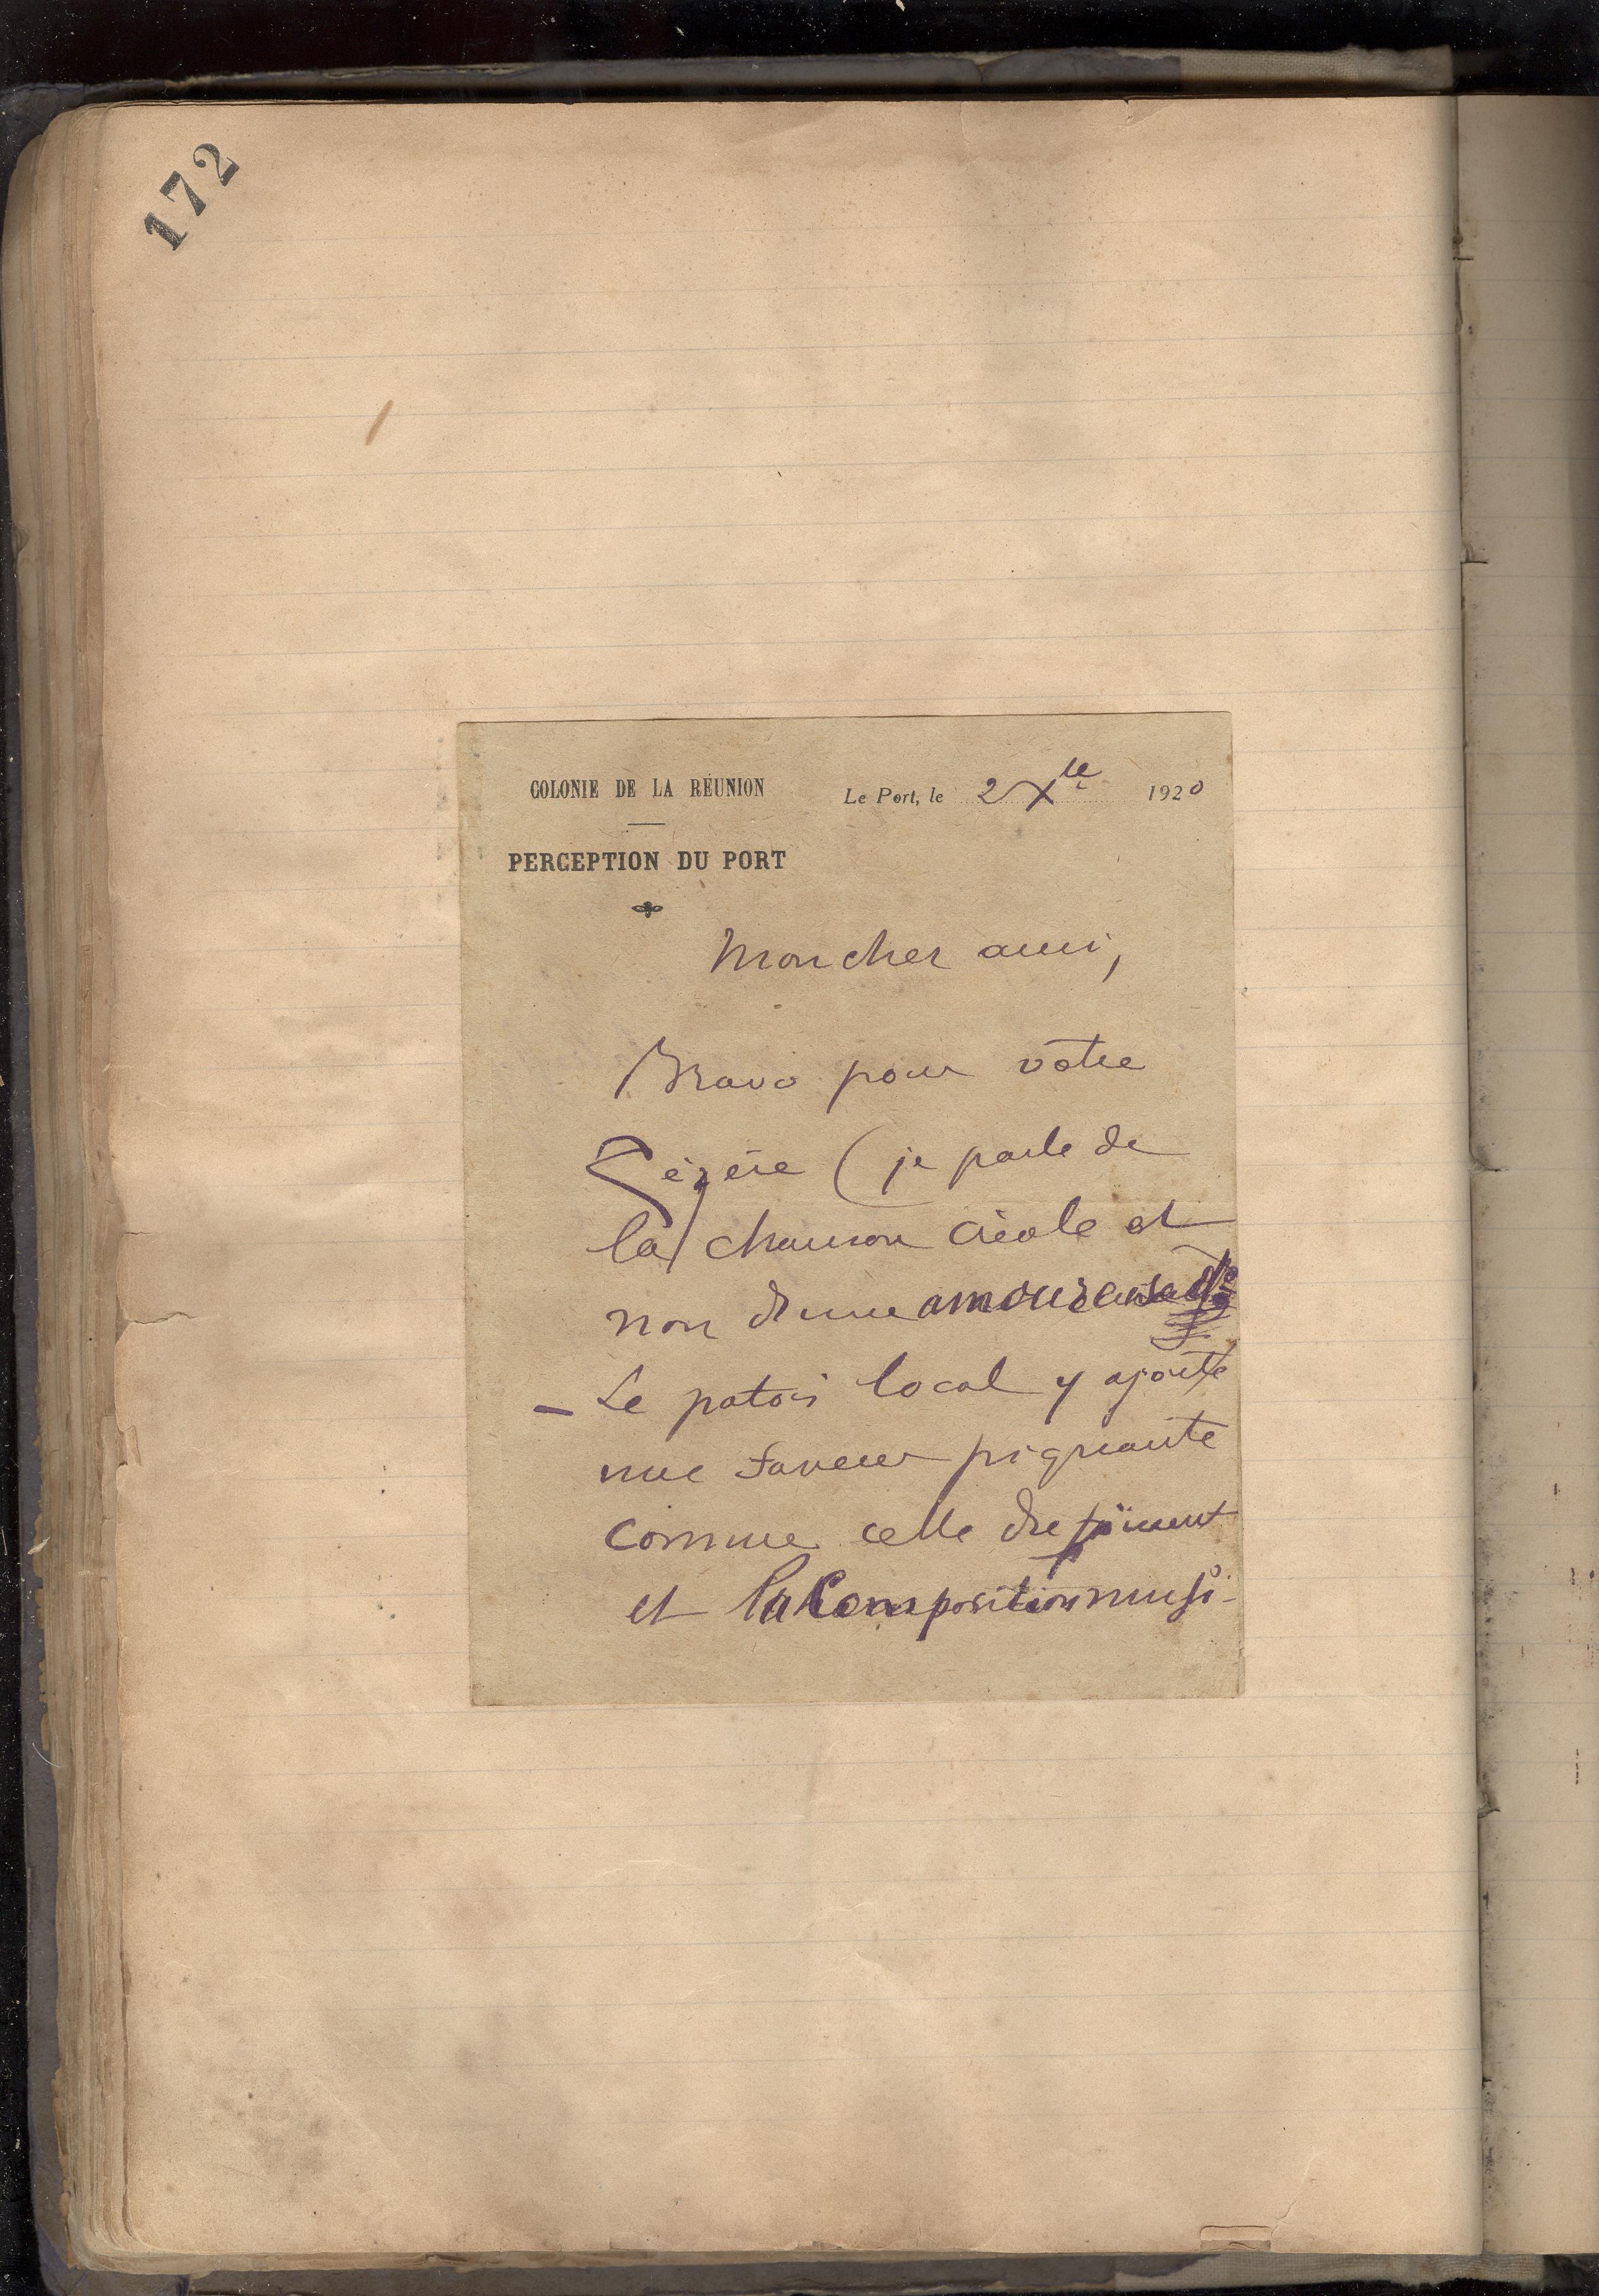 172
COLONIE DE LA RÉUNION
Le Port, le 2 Xbre 1920
PERCEPTION DU PORT
Mon cher ami,
Bravo pour votre
Zézère (je parle de
la chanson créole et
non d'une amoureuse
– Le patois local y ajoute
une saveur piquante
comme celle du piment
et la composition musi-